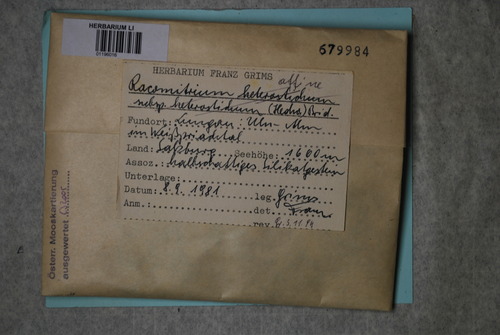 HERBARIUM LI
679984
HERBARIUM FRANZ GRIMS
affine
Racomitrium heterostichum
heterostichum (Hedw.) Brid.
Fundort: Lungau:
im Weißpriachtal
Land: Salzburg Seehöhe: 1600 m
Assoz.: halbschattiges Silikatgestein
Unterlage:
Datum: 8.9.1981 leg. Grims
Anm.: det. Franz
rev.
Österr. Mooskartierung
ausgewertet